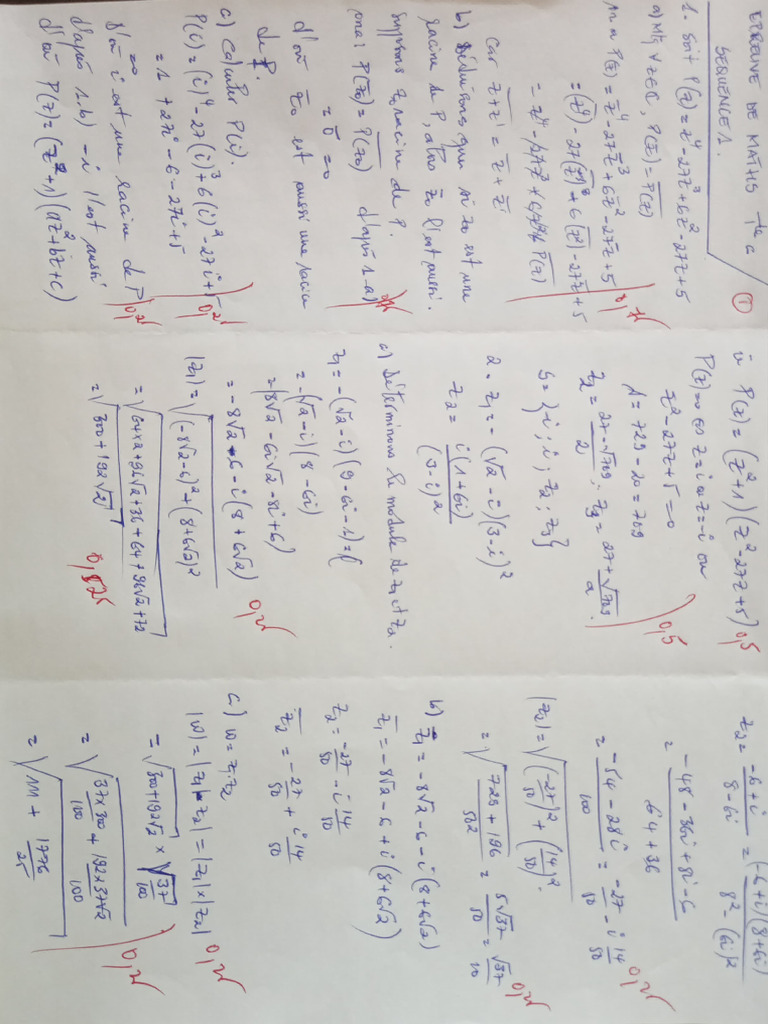 EPREUVE DE MATHS Tle C
SEQUENCE 1.
①
1. Soit P(z) = z⁴ - 27z³ + 6z² - 27z + 5
a) Mq ∀ z ∈ ℂ, P(z̄) = \overline{P(z)}
P(z̄) = z̄⁴ - 27z̄³ + 6z̄² - 27z̄ + 5
= \overline{(z⁴)} - 27\overline{(z)³} + 6\overline{(z²)} - 27z̄ + 5
= \overline{z⁴ - 27z³ + 6z²} \overline{P(z)}
Car \overline{z + z'} = z̄ + z̄'
b) Déduisons que si z₀ est une
racine de P, alors z̄₀ l'est aussi.
Supposons z₀ racine de P.
on a : P(z̄₀) = \overline{P(z₀)} d'après 1-a)
= \overline{0} = 0
d'où z̄₀ est aussi une racine
de P.
c) Calculer P(i).
P(i) = (i)⁴ - 27(i)³ + 6(i)² - 27i + 5
= 1 + 27i - 6 - 27i + 5
= 0
D'où i est une racine de P
0,25
d'après 1.b) - i l'est aussi
d'où P(z) = (z² + 1)(az² + bz + c)
P(z) = (z² + 1)(z² - 27z + 5)
0,5
P(z) = 0 ⇔ z = i ou z = -i ou
z² - 27z + 5 = 0
Δ = 729 - 20 = 709
z₂ = \frac{27 - √709}{2} ; z₃ = \frac{27 + √709}{2}
0,5
S = {i ; i ; z₂ ; z₃}
2. z₁ = -(√2 - i)(3 - i)²
z₂ = \frac{i(1 + 6i)}{(3 - i)²}
a) Déterminons le module de z₁ et z₂.
z₁ = -(√2 - i)(9 - 6i - 1) = (
= -(√2 - i)(8 - 6i)
= (8√2 - 6i√2 - 8i + 6)
= -8√2 - 6 - i(8 + 6√2)
|z₁| = √((-8√2 - 6)² + (8 + 6√2)²
= √(64×2 + 96√2 + 36 + 64 + 96√2 + 72
= √(300 + 192√2)
z₂ = \frac{-6 + i}{8 - 6i} = \frac{(-6 + i)(8 + 6i)}{8² - (6i)²}
= \frac{-48 - 36i + 8i - 6}{64 + 36}
= \frac{-54 - 28i}{100} = \frac{-27}{50} - i\frac{14}{50}
|z₂| = √((\frac{-27}{50})² + (\frac{14}{50})²
= √(\frac{729 + 196}{50²}) = \frac{5√37}{50} = \frac{√37}{10}
b) z₁ = -8√2 - 6 - i(8 + 6√2)
z̄₁ = -8√2 - 6 + i(8 + 6√2)
z₂ = \frac{-27}{50} - i\frac{14}{50}
z̄₂ = \frac{-27}{50} + i\frac{14}{50}
c) W = z₁z₂
|W| = |z₁ z₂| = |z₁| × |z₂|
= √(300 + 192√2) × √(\frac{37}{100})
= √(\frac{37×300}{100} + \frac{192×37√2}{100})
= √(111 + \frac{1776}{25})